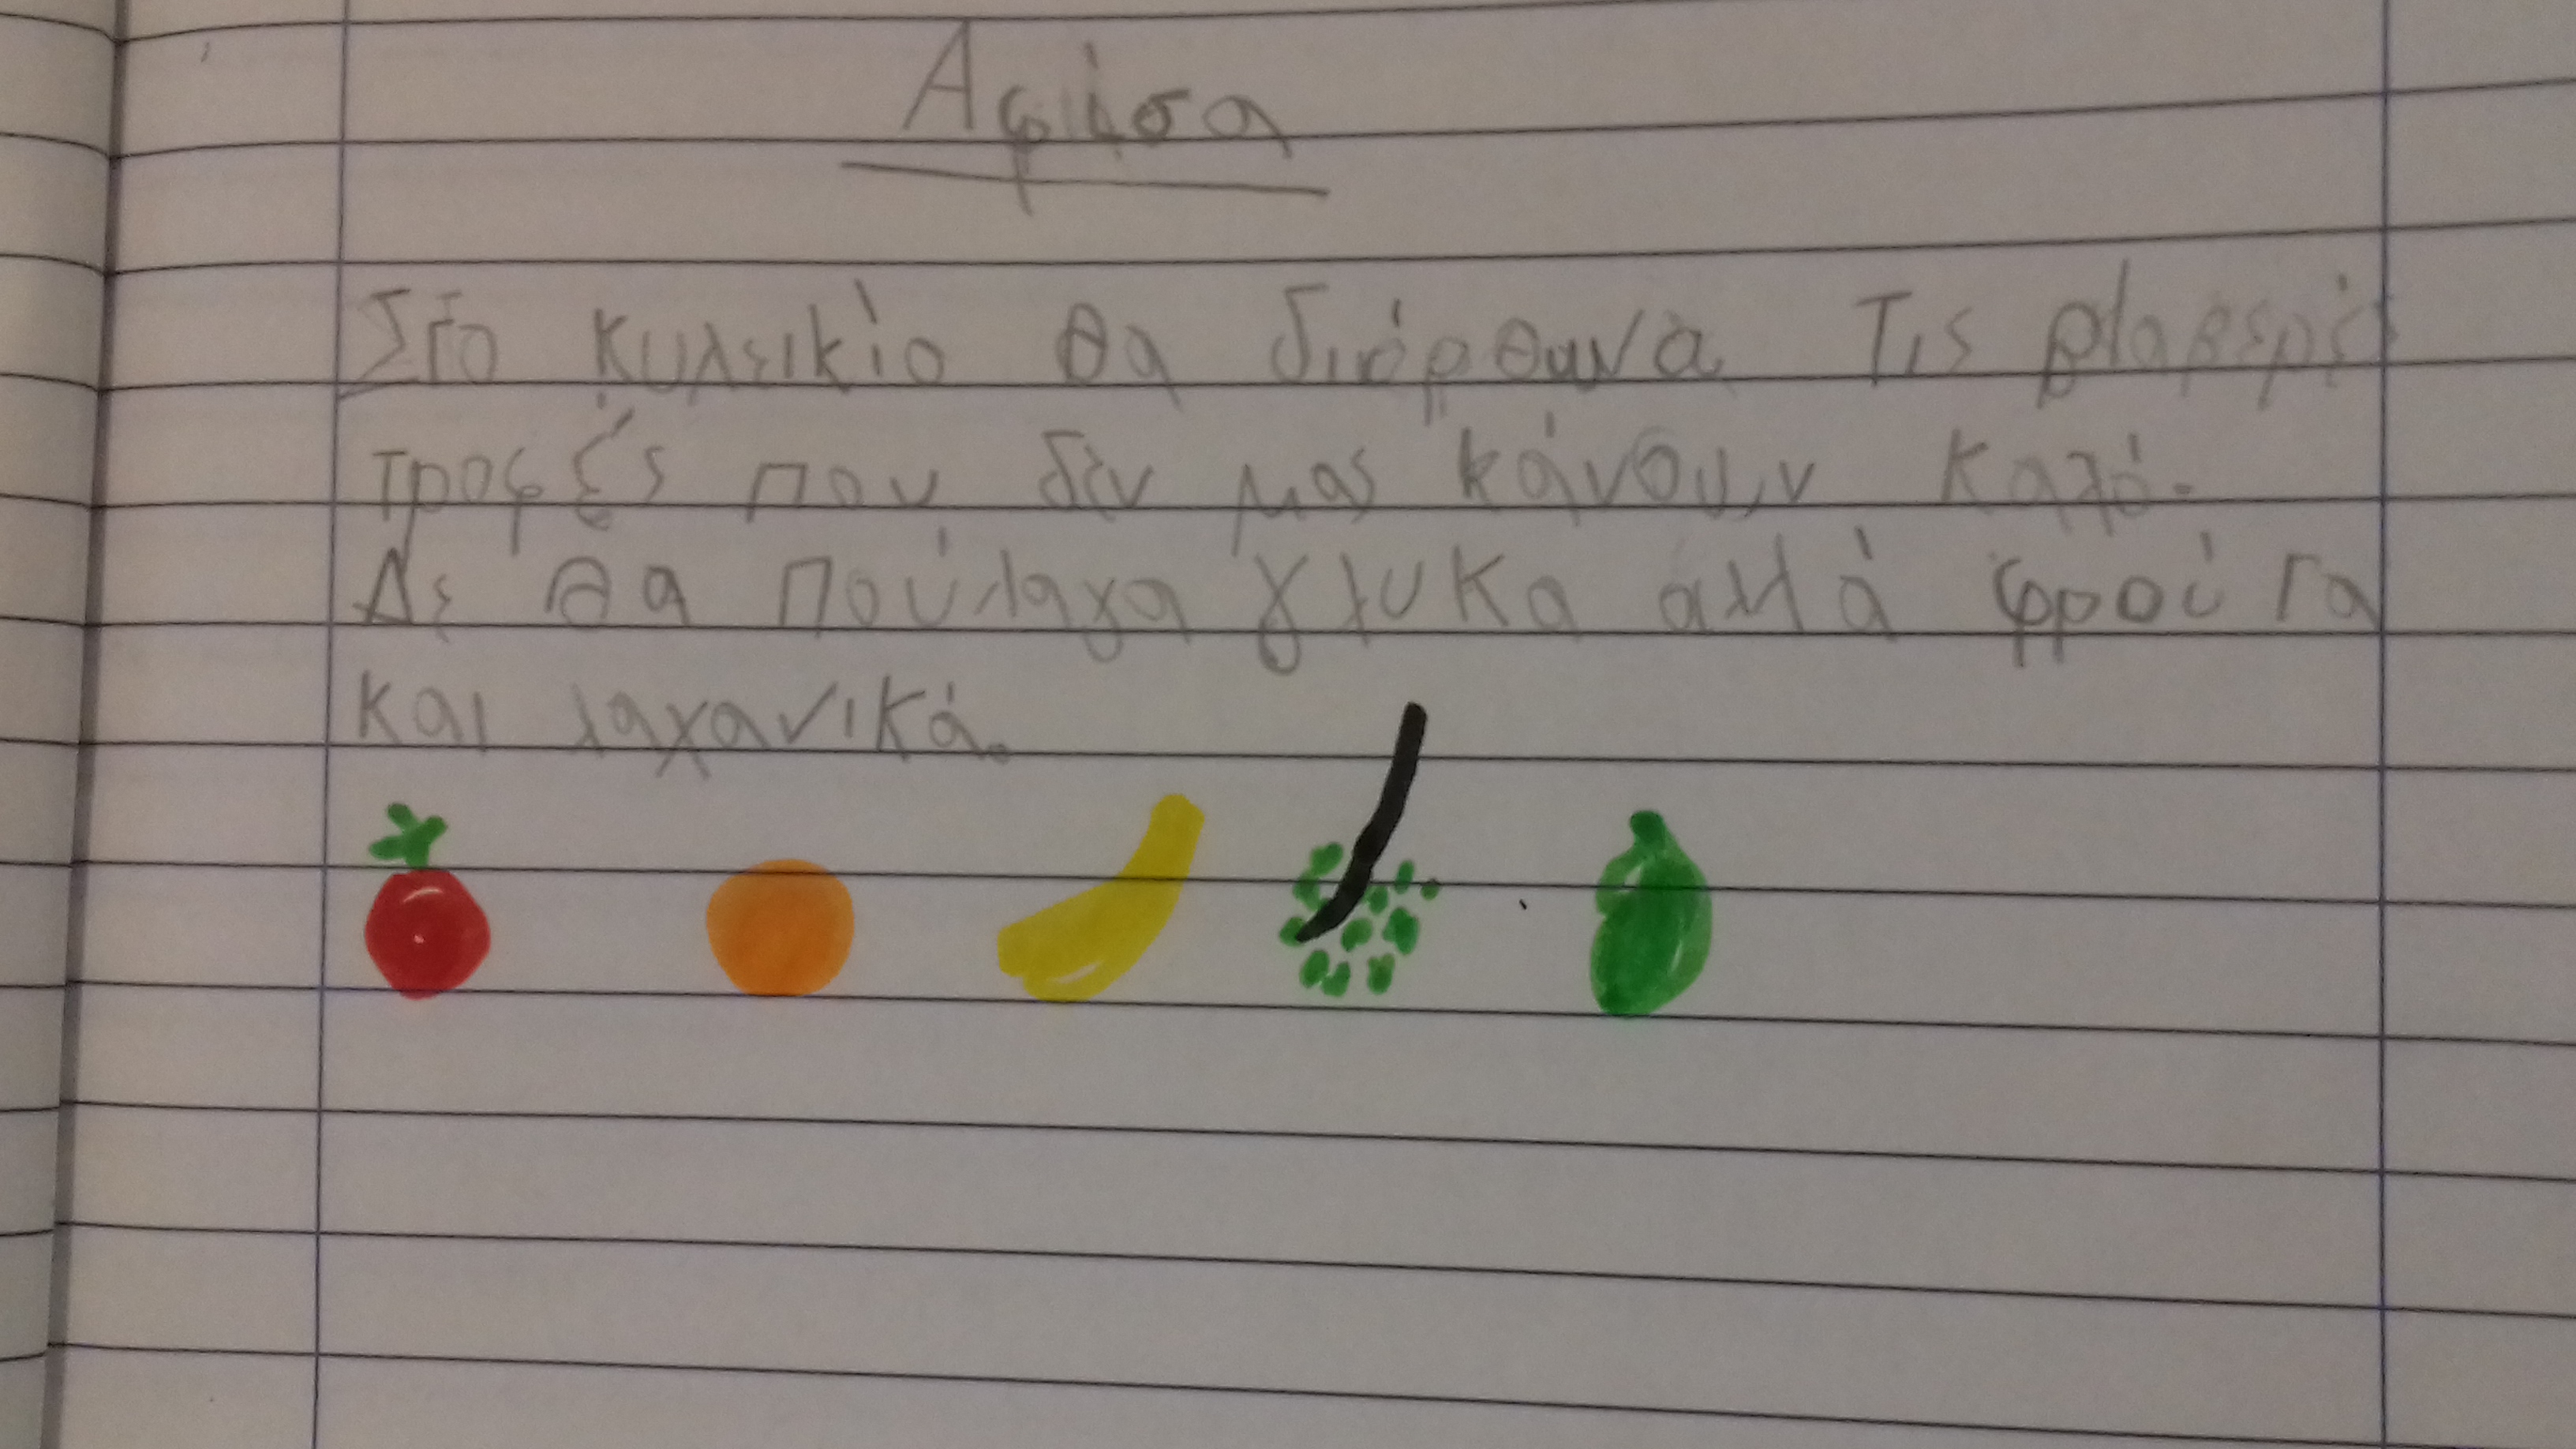 Αφίσα
Στο κυλικίο θα διόρθωνα τις βλαβερές
τροφές που δεν μας κάνουν καλό.
Δε θα πούλαγα γλυκα αλλά φρούτα
και λαχανικά.